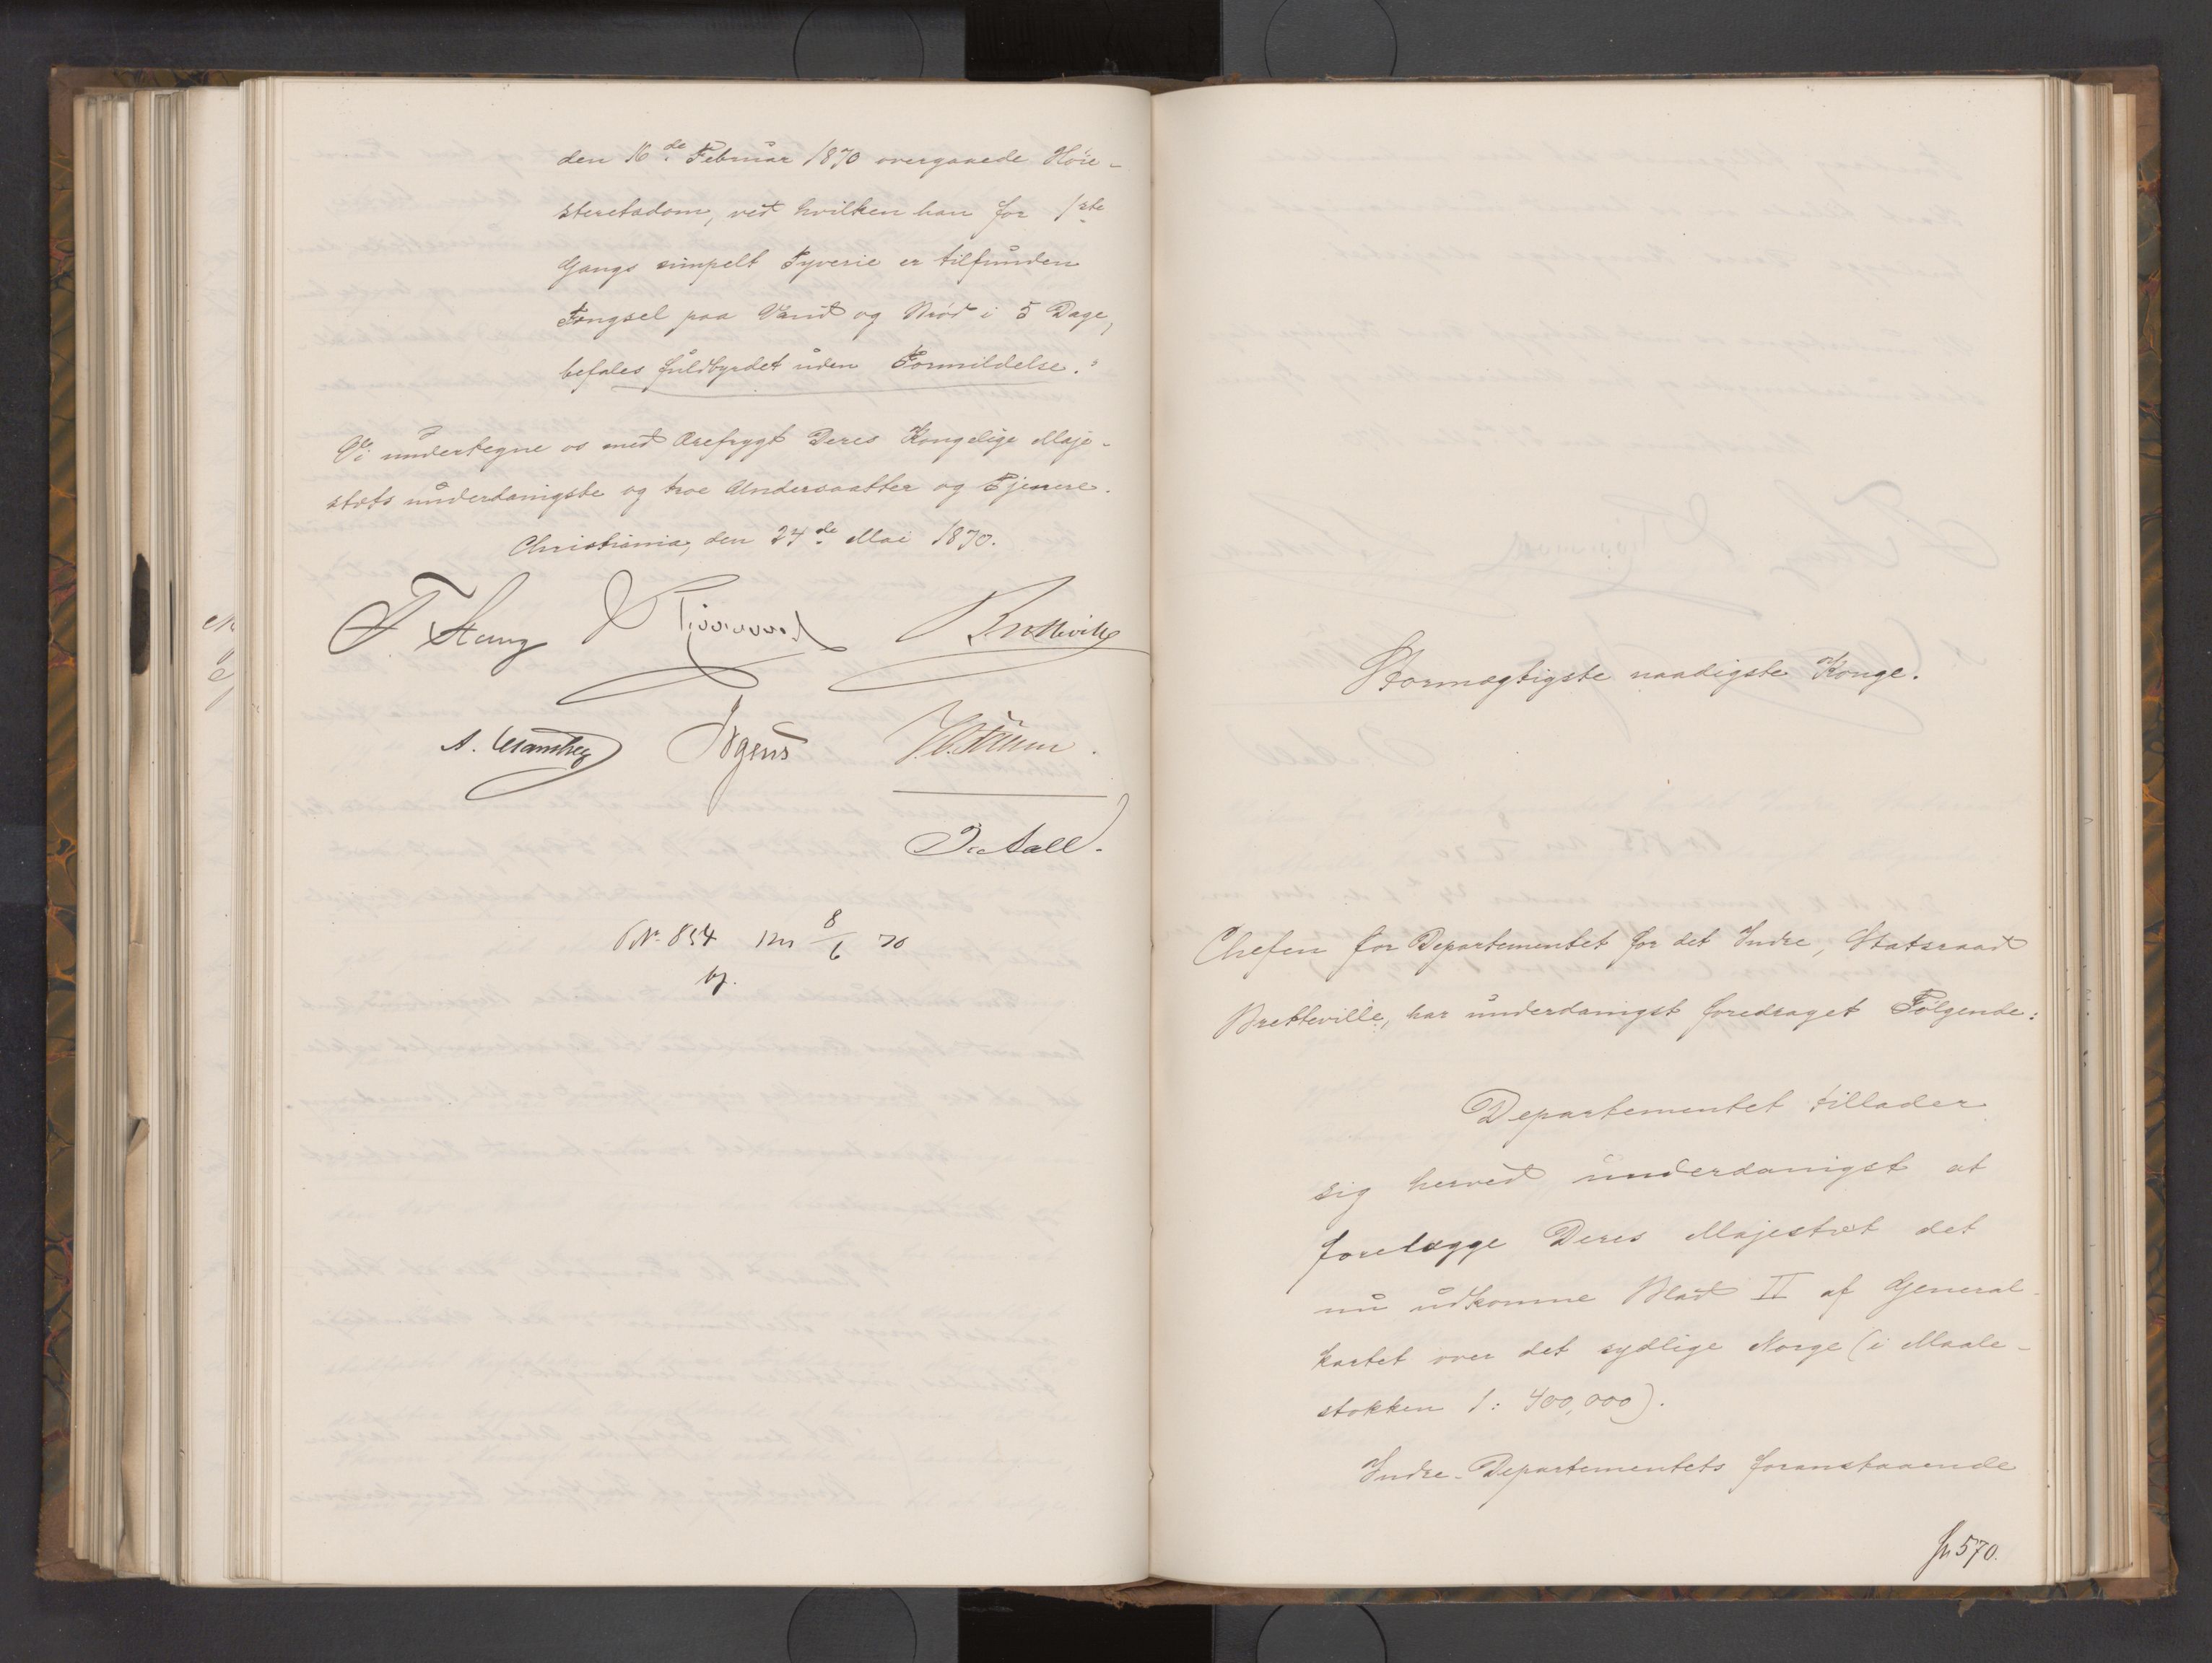 den 16de Februar 1870 overgaaede Høie-
steretsdom, ved hvilken han for 1ste
Gangs simpelt Tyverie er tilfunden
Fængsel paa Vand og Brød i 5 Dage,
befales fuldbyrdet uden Formildelse."
Vi undertegne os med Ærefrygt Deres Kongelige Maje-
stæts underdanigste og troe Undersaatter og Tjenere.
Christiania, den 24de Mai 1870.
F. Stang Bretteville
Irgens
J. Aall.
No. 854 8/6 70
Stormægtigste naadigste Konge.
Chefen for Departementet for det Indre, Statsraad
Bretteville, har underdanigst foredraget Følgende:
Departementet tillader
sig herved underdanigst at
forelægge Deres Majestæt det
nu udkomne Blad II af General-
kartet over det sydlige Norge (i Maale-
stokken 1: 400,000).
Indre-Departementets foranstaaende
570.